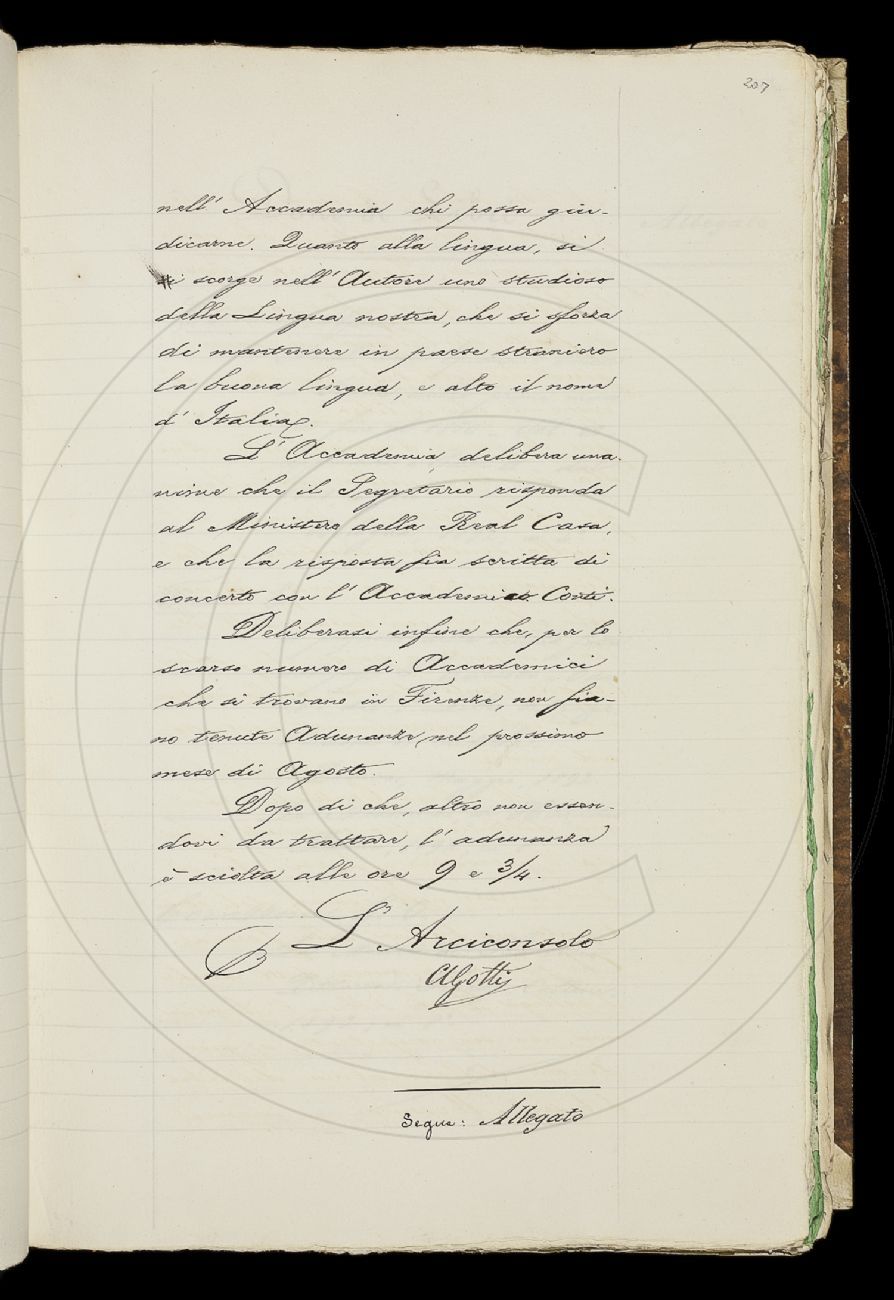 207
nell' Accademia chi possa giu-
dicarne. Quanto alla lingua, si
si scorge nell' Autore uno studioso
della Lingua nostra, che si sforza
di mantenere in paese straniero
la buona lingua, e alto il nome
d' Italia.
L' Accademia, delibera una-
nime che il Segretario risponda
al Ministero della Real Casa,
e che la risposta sia scritta di
concerto con l' Accademico Conti.
Deliberasi infine che, per lo
scarso numero di Accademici
che si trovano in Firenze, non sia-
no tenute Adunanze, nel prossimo
mese di Agosto.
Dopo di che, altro non essen-
dovi da trattare, l' adunanza
è sciolta alle ore 9 e 3/4.
L' Arciconsolo
AGotti
Segue: Allegato